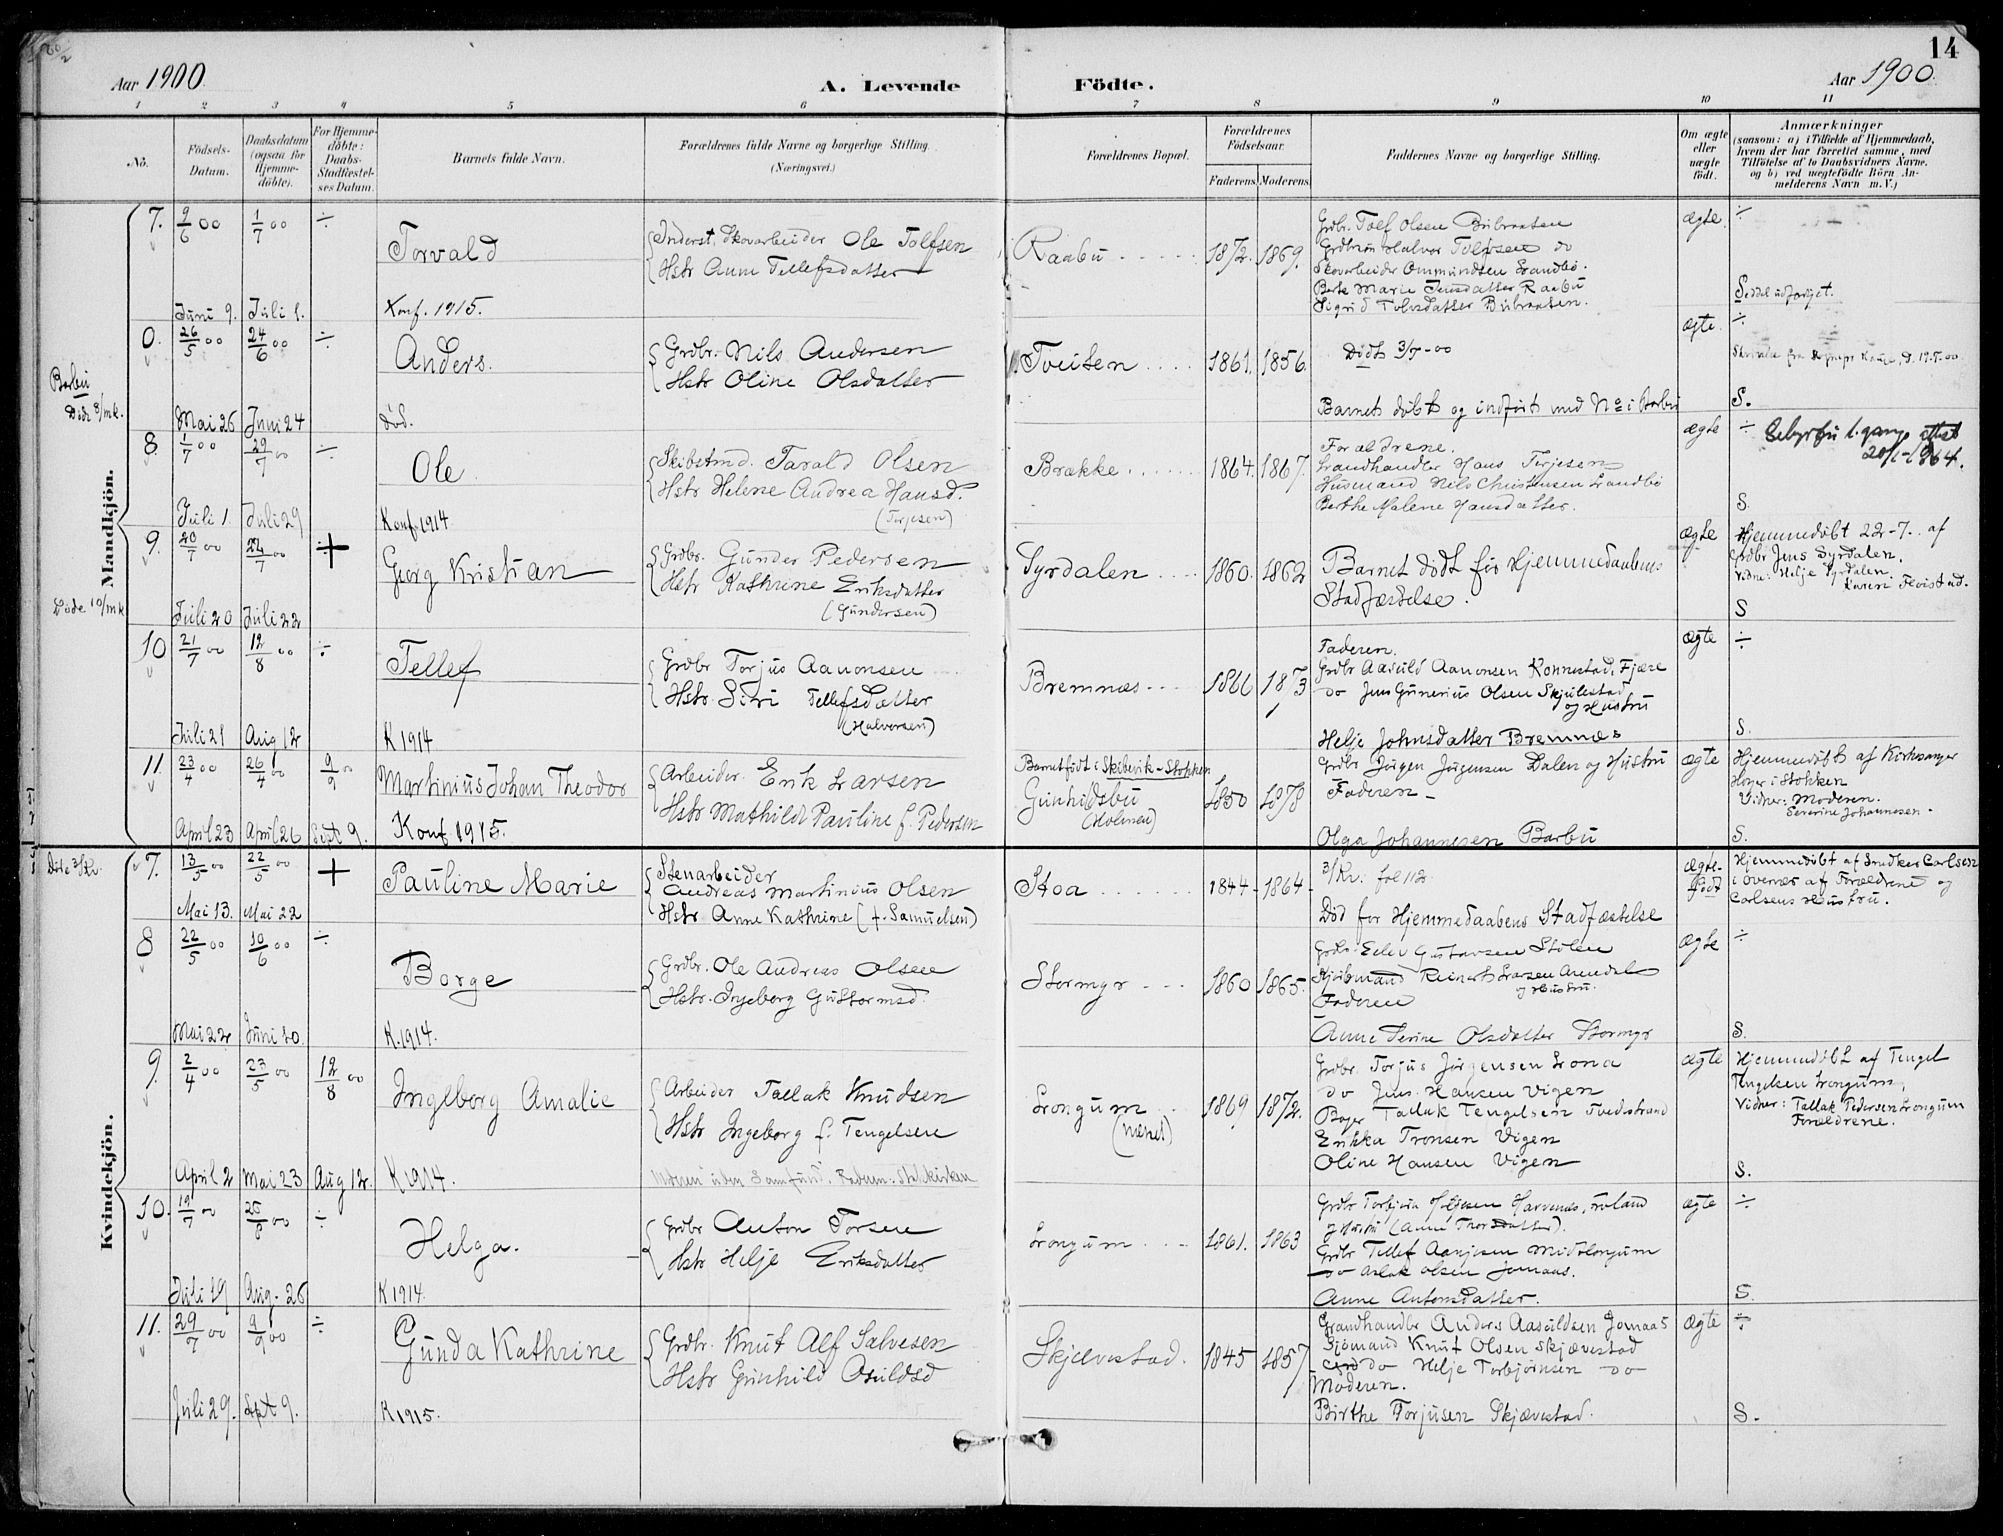 14
Aar 1900. A. Levende Födte. Aar 1900.
1 2 3 4 5 6 7 8 9 10 11
No.
Födsels-
Datum.
Daabsdatum
(ogsaa for
Hjemme-
döbte).
For Hjemme-
döbte:
Daabs-
Stadfæstel-
ses Datum.
Barnets fulde Navn.
Forældrenes fulde Navne og borgerlige Stilling
(Næringsvei.)
Forældrenes Bopæl.
Forældrenes
Födselsaar.
Faderens Moderens
Faddernes Navne og borgerlige Stilling.
Om ægte
eller
uægte
födt.
Anmærkninger
(saasom: a) i Tilfælde af Hjemmedaab,
hvem der har forrettet samme, med
Tilföielse af to Daabsvidners Navne.
og b) ved uægtefödte Börn An-
melderens Navn m.V.)
Mandkjön.
7. 9/6 00 1/7 00 ÷
Torvald
Inderst, Skovarbeider Ole Tolfsen
Hstr Anne Tellefsdatter
Raabu 1872. 1869.
Grdbr. Tolf Olsen Bubraaten
Halvor Tolfsen do
Skovarbeider Ommundsen Landbø.
Berte Marie Jensdatter, Raabu
Sigrid Tolvsdatter Bubraaten.
ægte. ÷
Juni 9. Juli 1.
Konf. 1915.
Barbu
Døde 8/mk.
0. 26/5 00 24/6 00 ÷
Anders.
Grdbr. Nils Andersen
Hstr Oline Olsdatter
Tveiten 1861. 1856.
Dødt 3/7-00
Barnet døbt og indført med No i Barbu
ægte. ÷
S.
Mai 26 Juni 24
død.
8. 1/7 00 29/7 00 ÷
Ole
Skibstmd. Tarald Olsen
Hstr Helene Andrea Hansd.
(Terjesen)
Brække 1864. 1867.
Forældrene.
Landhandler Hans Terjesen
Husmand Nils Christensen Landbø
Berthe Malene Hansdatter.
ægte ÷
20/1-1964.
S.
Juli 1 Juli 29
Konf. 1914
Døde 10/mk
9. 20/7 00 22/7 00
Georg Kristian
Grdbr. Gunder Pedersen
Hstr Kathrine Eriksdatter
(Gundersen)
Syrdalen 1860. 1862
Barnet dødt før Hjemmedaabens
Stadfæstelse.
ægte
Hjemmedøbt 22-7. af
Grdbr Jens Syrdalen.
Vidne: Helje Syrdalen
S
Juli 20 Juli 22
10 21/7 00 12/8 00 ÷
Tellef
Grdbr Torjus Aanonsen
Hstr. Siri Tellefsdatter
(Halvorsen)
Bremnæs 1866 1873
Faderen.
Grdbr Aasuld Aanonsen Konnestad, Fjære
do Jens Gunerius Olsen Skjulestad
og Hustru
Helje Johnsdatter Bremnæs
ægte ÷
S.
Juli 21 Aug 12
K 1914
11. 23/4 00 26/4 00 9/9 00
Martinius Johan Theodor
Arbeider. Erik Larsen
Hstr Mathilde Pauline f. Pedersen
Barnet født i Skibevik-Stokken
Gunhildsbu
(Holmen)
1850 1878
Grdbr Jørgen Jørgensen Dalen og Hustru
Faderen
Olga Johannesen Barbu
ægte
Hjemmedøbt af Kirkesanger
Høyer i Stokken
Vidner: Moderen.
Severine Johannesen.
S.
April 23 April 26 Sept 9.
Konf 1915.
Kvindekjön.
7. 13/5 00 22/5 00 +
Pauline Marie
Stenarbeider
Andreas Martinius Olsen
Hstr. Anne Kathrine (f. Samuelsen)
Stoa 1844 1864
Død før Hjemmedaabens Stadfæstelse
ægte-
født
Hjemmedøbt af Snedker Carlsen
i Ovenæs af Forældrene og
Carlsens Hustru.
Mai 13. Mai 22
8 22/5 00 10/6 00 ÷
Borge
Grdbr. Ole Andreas Olsen
Hstr. Ingeborg Guttormsd.
Stormyr 1860 1865.
Grdbr. Eilev Gustavsen Stølen
Reinert Larsen Arendal
og Hustru.
Faderen
Anne Serine Olsdatter Stormyr
ægte ÷
S.
Mai 22 Juni 10
K. 1914.
9. 2/4 00 23/5 00 12/8 00
Ingeborg Amalie
Arbeider Tallak Knudsen
Hstr Ingeborg f. Tengelsen
Longum
1869 1872.
Grdbr. Torjus Jørgensen Lona
do Jens Hansen Vigen
Tallak Tengelsen Tvedestrand
Erikka Tronsen Vigen
Oline Hansen Vigen
ægte
Hjemmedøbt af Tengel
Tengelsen Longum,
Vidner: Tallak Pedersen Longum
Forældrene.
S.
April 2 Mai 23 Aug 12.
K 1914.
Faderen. Statskirken
10. 19/7 00 26/8 00 ÷
Helga.
Grdbr Anton Torsen
Hstr Helje Eriksdatter
Longum 1861. 1863
og Hustru (Anne Thorsdatter).
Grdbr Tellef Aanjesen Midtlongum
do Aslak Olsen Jomaas.
Anne Antonsdatter.
ægte ÷
S.
Juli 19 Aug. 26
K 1914.
11. 29/7 00 9/9 00 ÷
Gunda Kathrine
Grdbr. Knut Alf Salvesen
Hstr Gunhild Osuldsd
Skjævestad. 1845 1857
Anders Aasuldsen Jomaas
Sjømand Knut Olsen Skjævestad
do Helje Torbjørnsen do
Moderen.
Birthe Torjusen Skjævestad.
ægte ÷
S.
Juli 29. Sept 9.
K 1915.